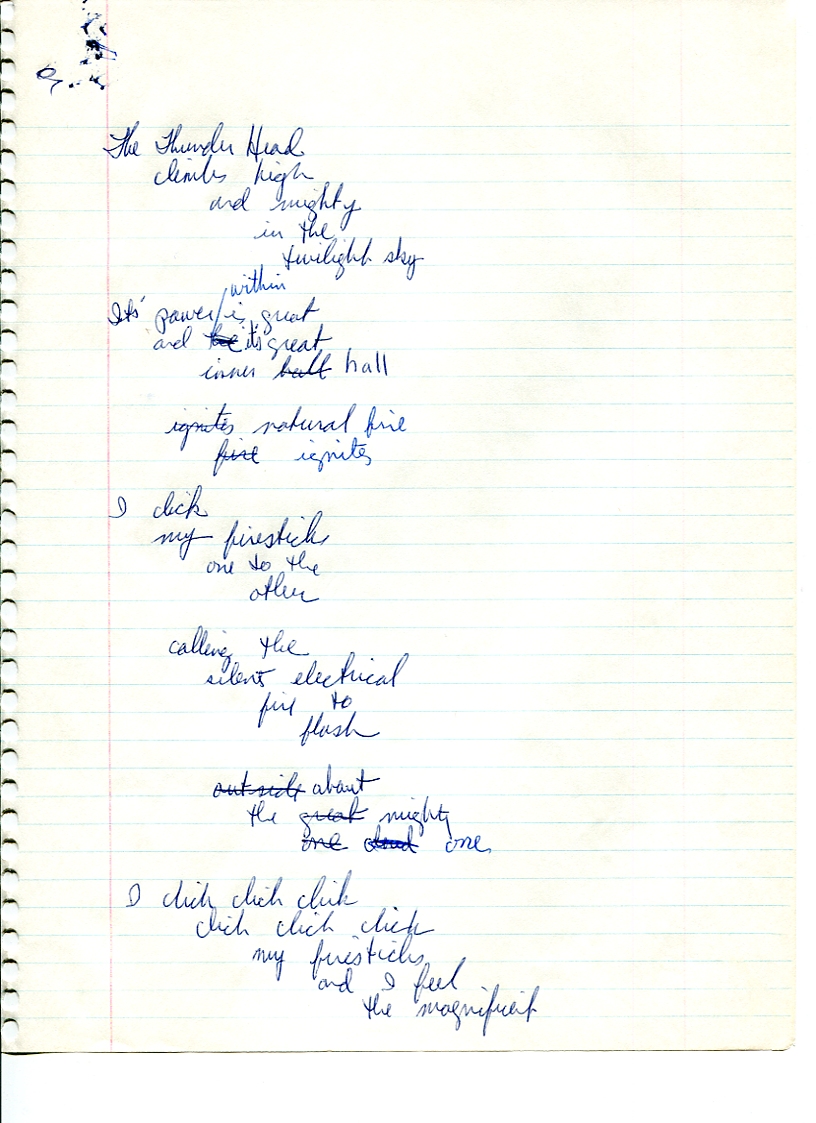 The Thunder Head
climbs high
and mighty
in the
twilight sky
within
Its' power is great
and the its great
inner ball hall
ignites natural fire
fire ignites
I click
my firesticks
one to the
other
calling the
silent electrical
fire to
flash
outside about
the great mighty
one cloud one
I click click click
click click click
my firesticks
and I feel
the magnificent